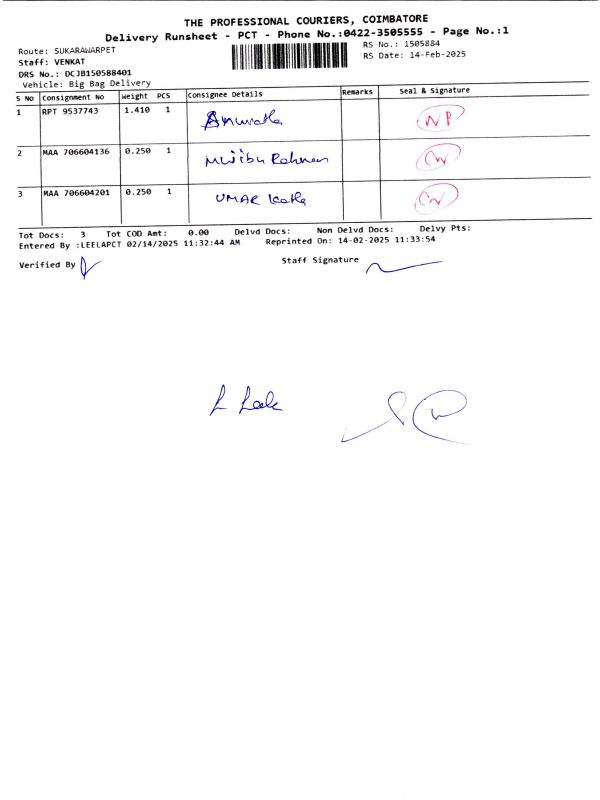 THE PROFESSIONAL COURIERS, COIMBATORE
Delivery Runsheet - PCT - Phone No.:0422-3505555 - Page No.:1
Route: SUKARAWARPET
RS No.: 1505884
Staff: VENKAT
RS Date: 14-Feb-2025
DRS No.: DCJB150588401
Vehicle: Big Bag Delivery
S No Consignment No Weight PCS Consignee Details Remarks Seal & Signature
1 RPT 9537743 1.410 1 NP
2 MAA 706604136 0.250 1 Mujibu Rahman
3 MAA 706604201 0.250 1 UMAR
Tot Docs: 3 Tot COD Amt: 0.00 Delvd Docs: Non Delvd Docs: Delvy Pts:
Entered By :LEELAPCT 02/14/2025 11:32:44 AM Reprinted On: 14-02-2025 11:33:54
Verified By Staff Signature